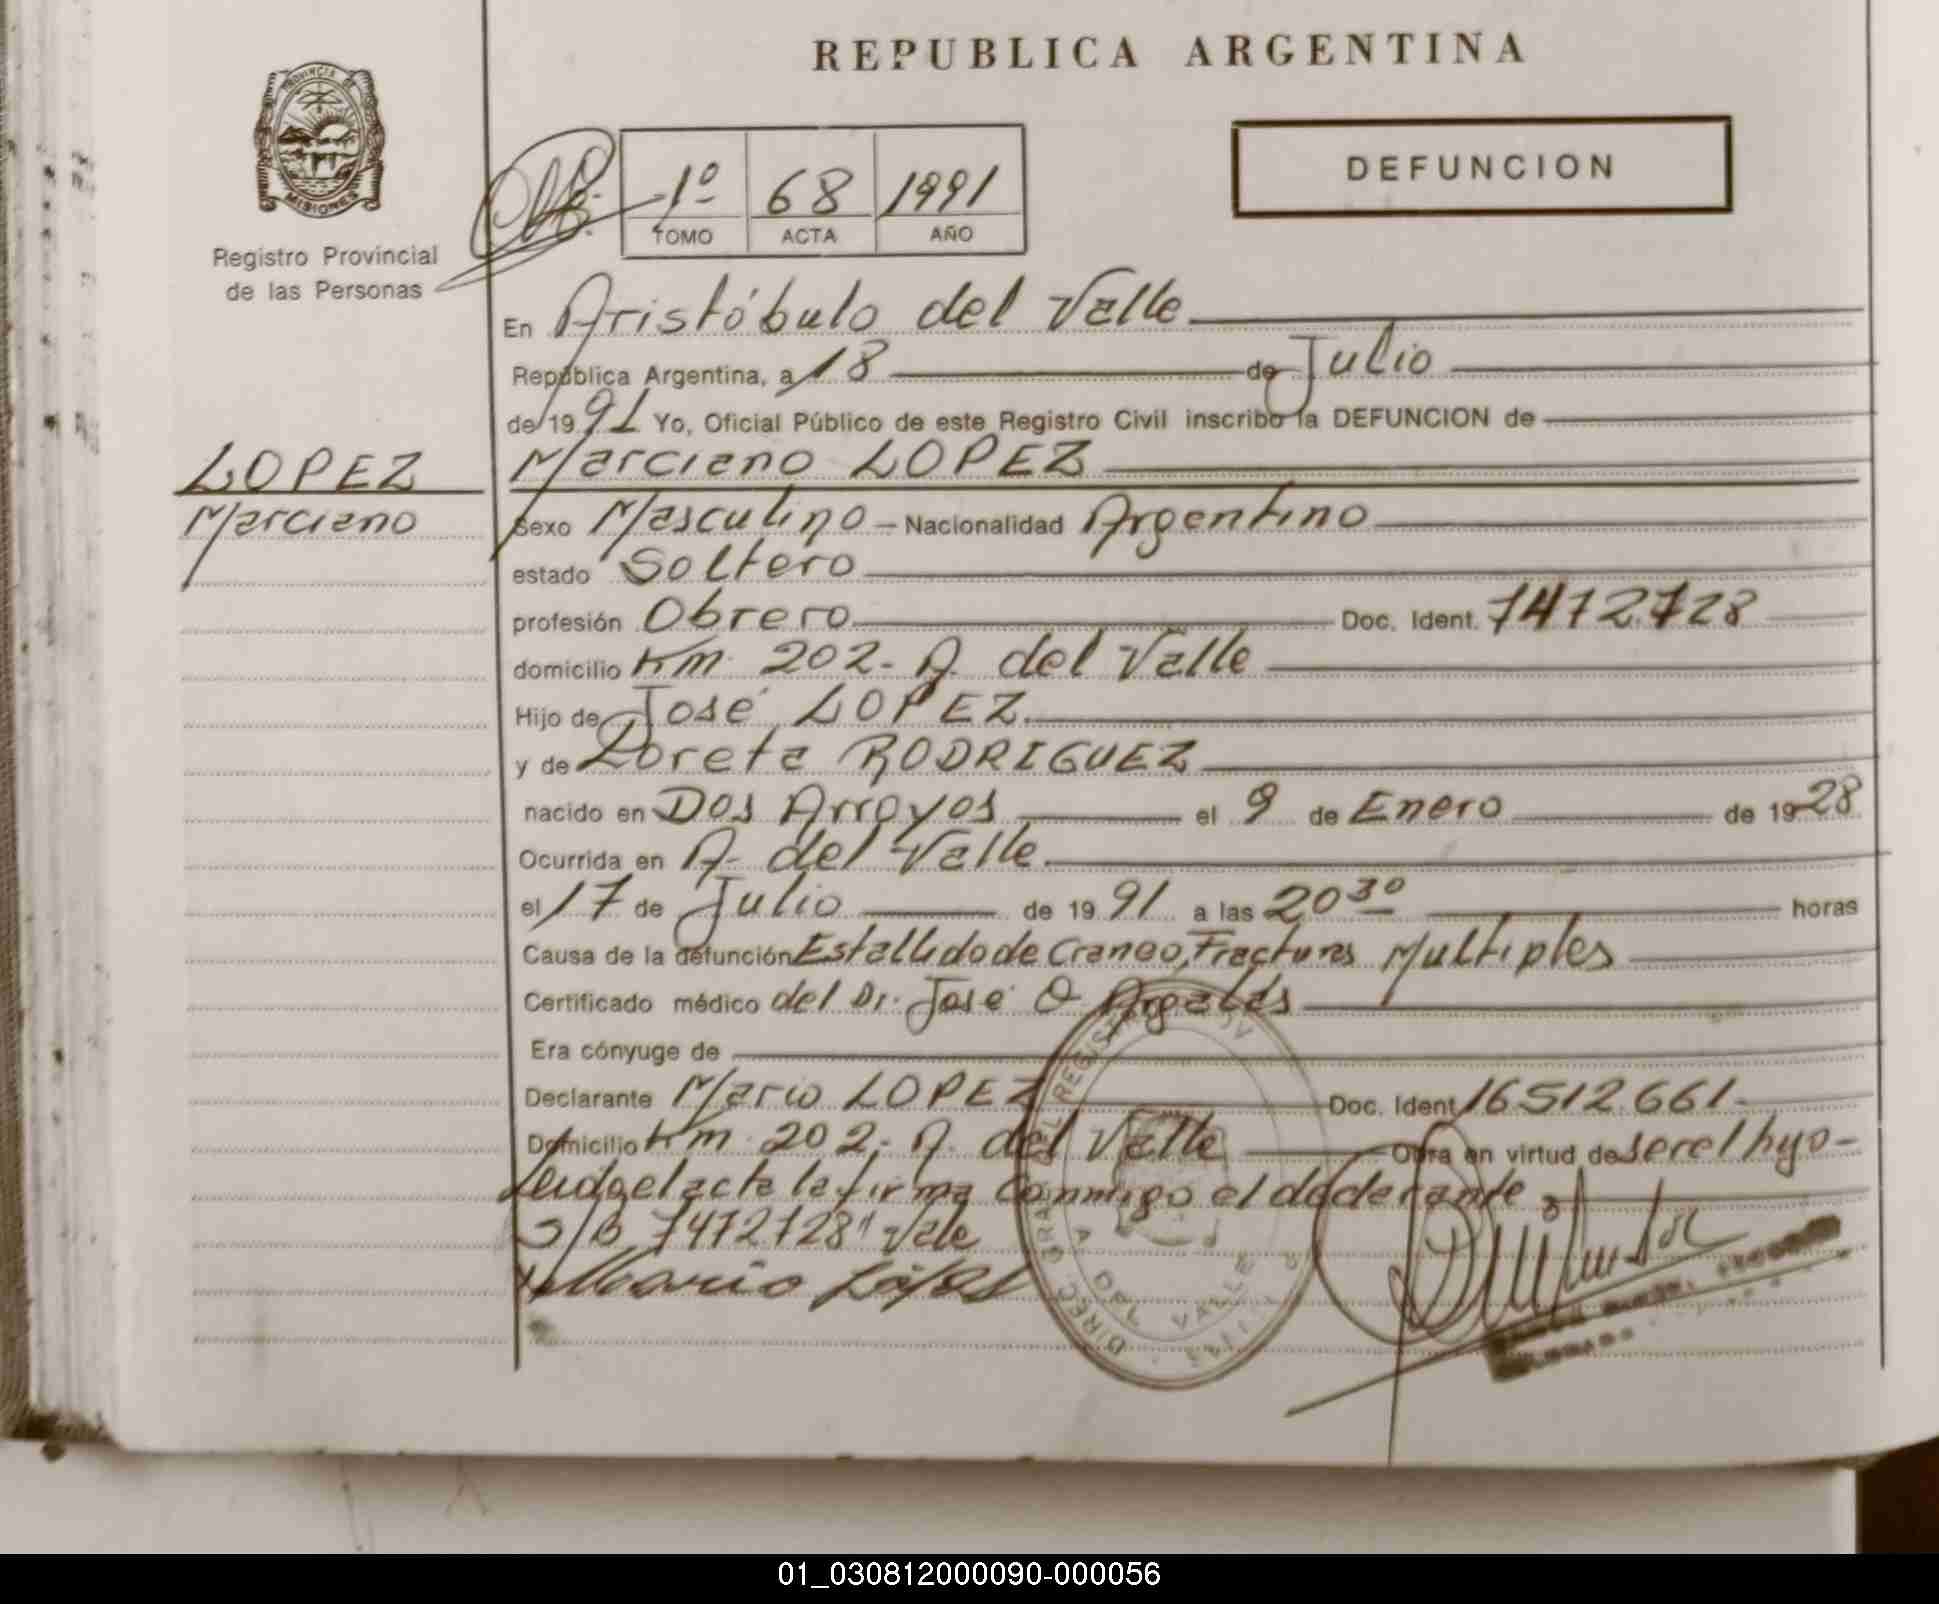 REPUBLICA ARGENTINA
PROVINCIA DE
MISIONES
Registro Provincial
de las Personas
1º 68 1991
TOMO ACTA AÑO
DEFUNCION
En Aristóbulo del Valle
República Argentina, a 18 de Julio
de 1991 Yo, Oficial Público de este Registro Civil inscribo la DEFUNCION de
LOPEZ
Marciano
Marciano LOPEZ
Sexo Masculino - Nacionalidad Argentino
estado Soltero
profesión Obrero Doc. Ident. 7472728
domicilio Km. 202- A. del Valle
Hijo de José LOPEZ
y de Loreta RODRIGUEZ
nacido en Dos Arroyos el 9 de Enero de 1928
Ocurrida en A- del Valle
el 17 de Julio de 1991 a las 20 30 horas
Causa de la defunción Estallido de Craneo, Fracturas Multiples
Certificado médico del Dr. José O
Era cónyuge de
Declarante Mario LOPEZ Doc. Ident 16512.661-
Domicilio Km. 202- A. del Valle Obra en virtud de ser el hijo-
Leida el acta la firma Conmigo el
S/B 7472728" Vale
Mario López
DIREC GRAL DEL REGISTRO
A DEL VALLE
01_030812000090-000056